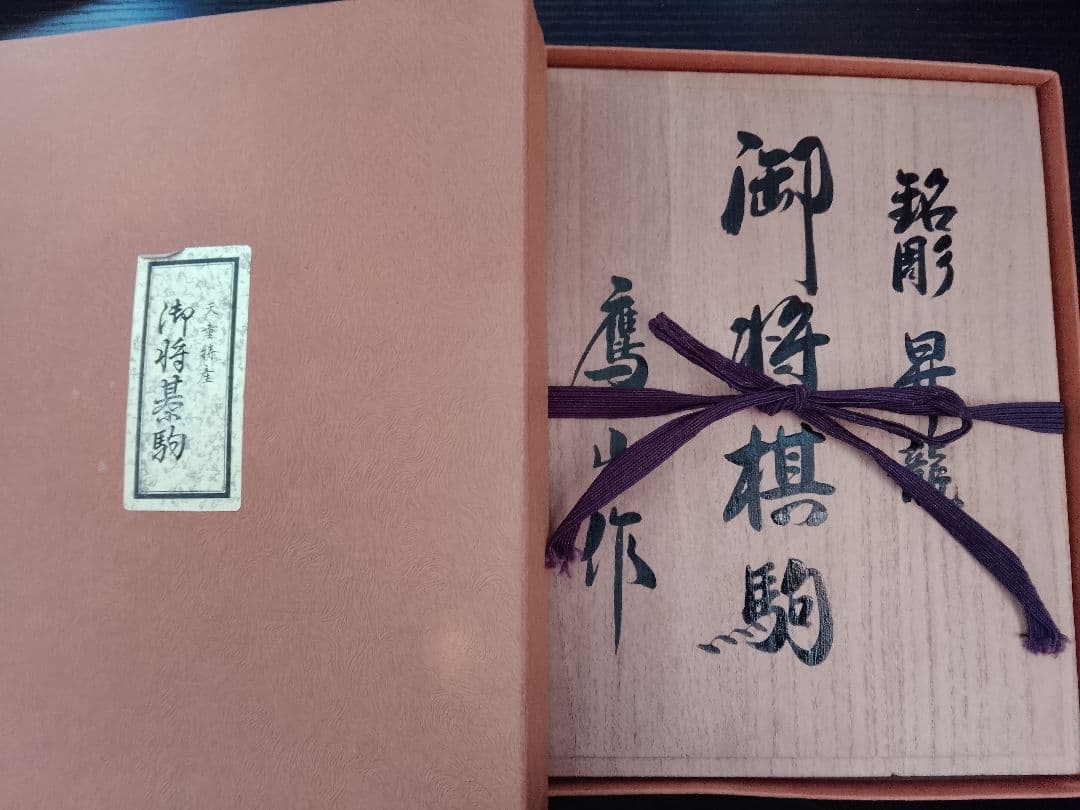 天童特産
御将棊駒
銘彫 昇龍
御将棋駒
鷹山作